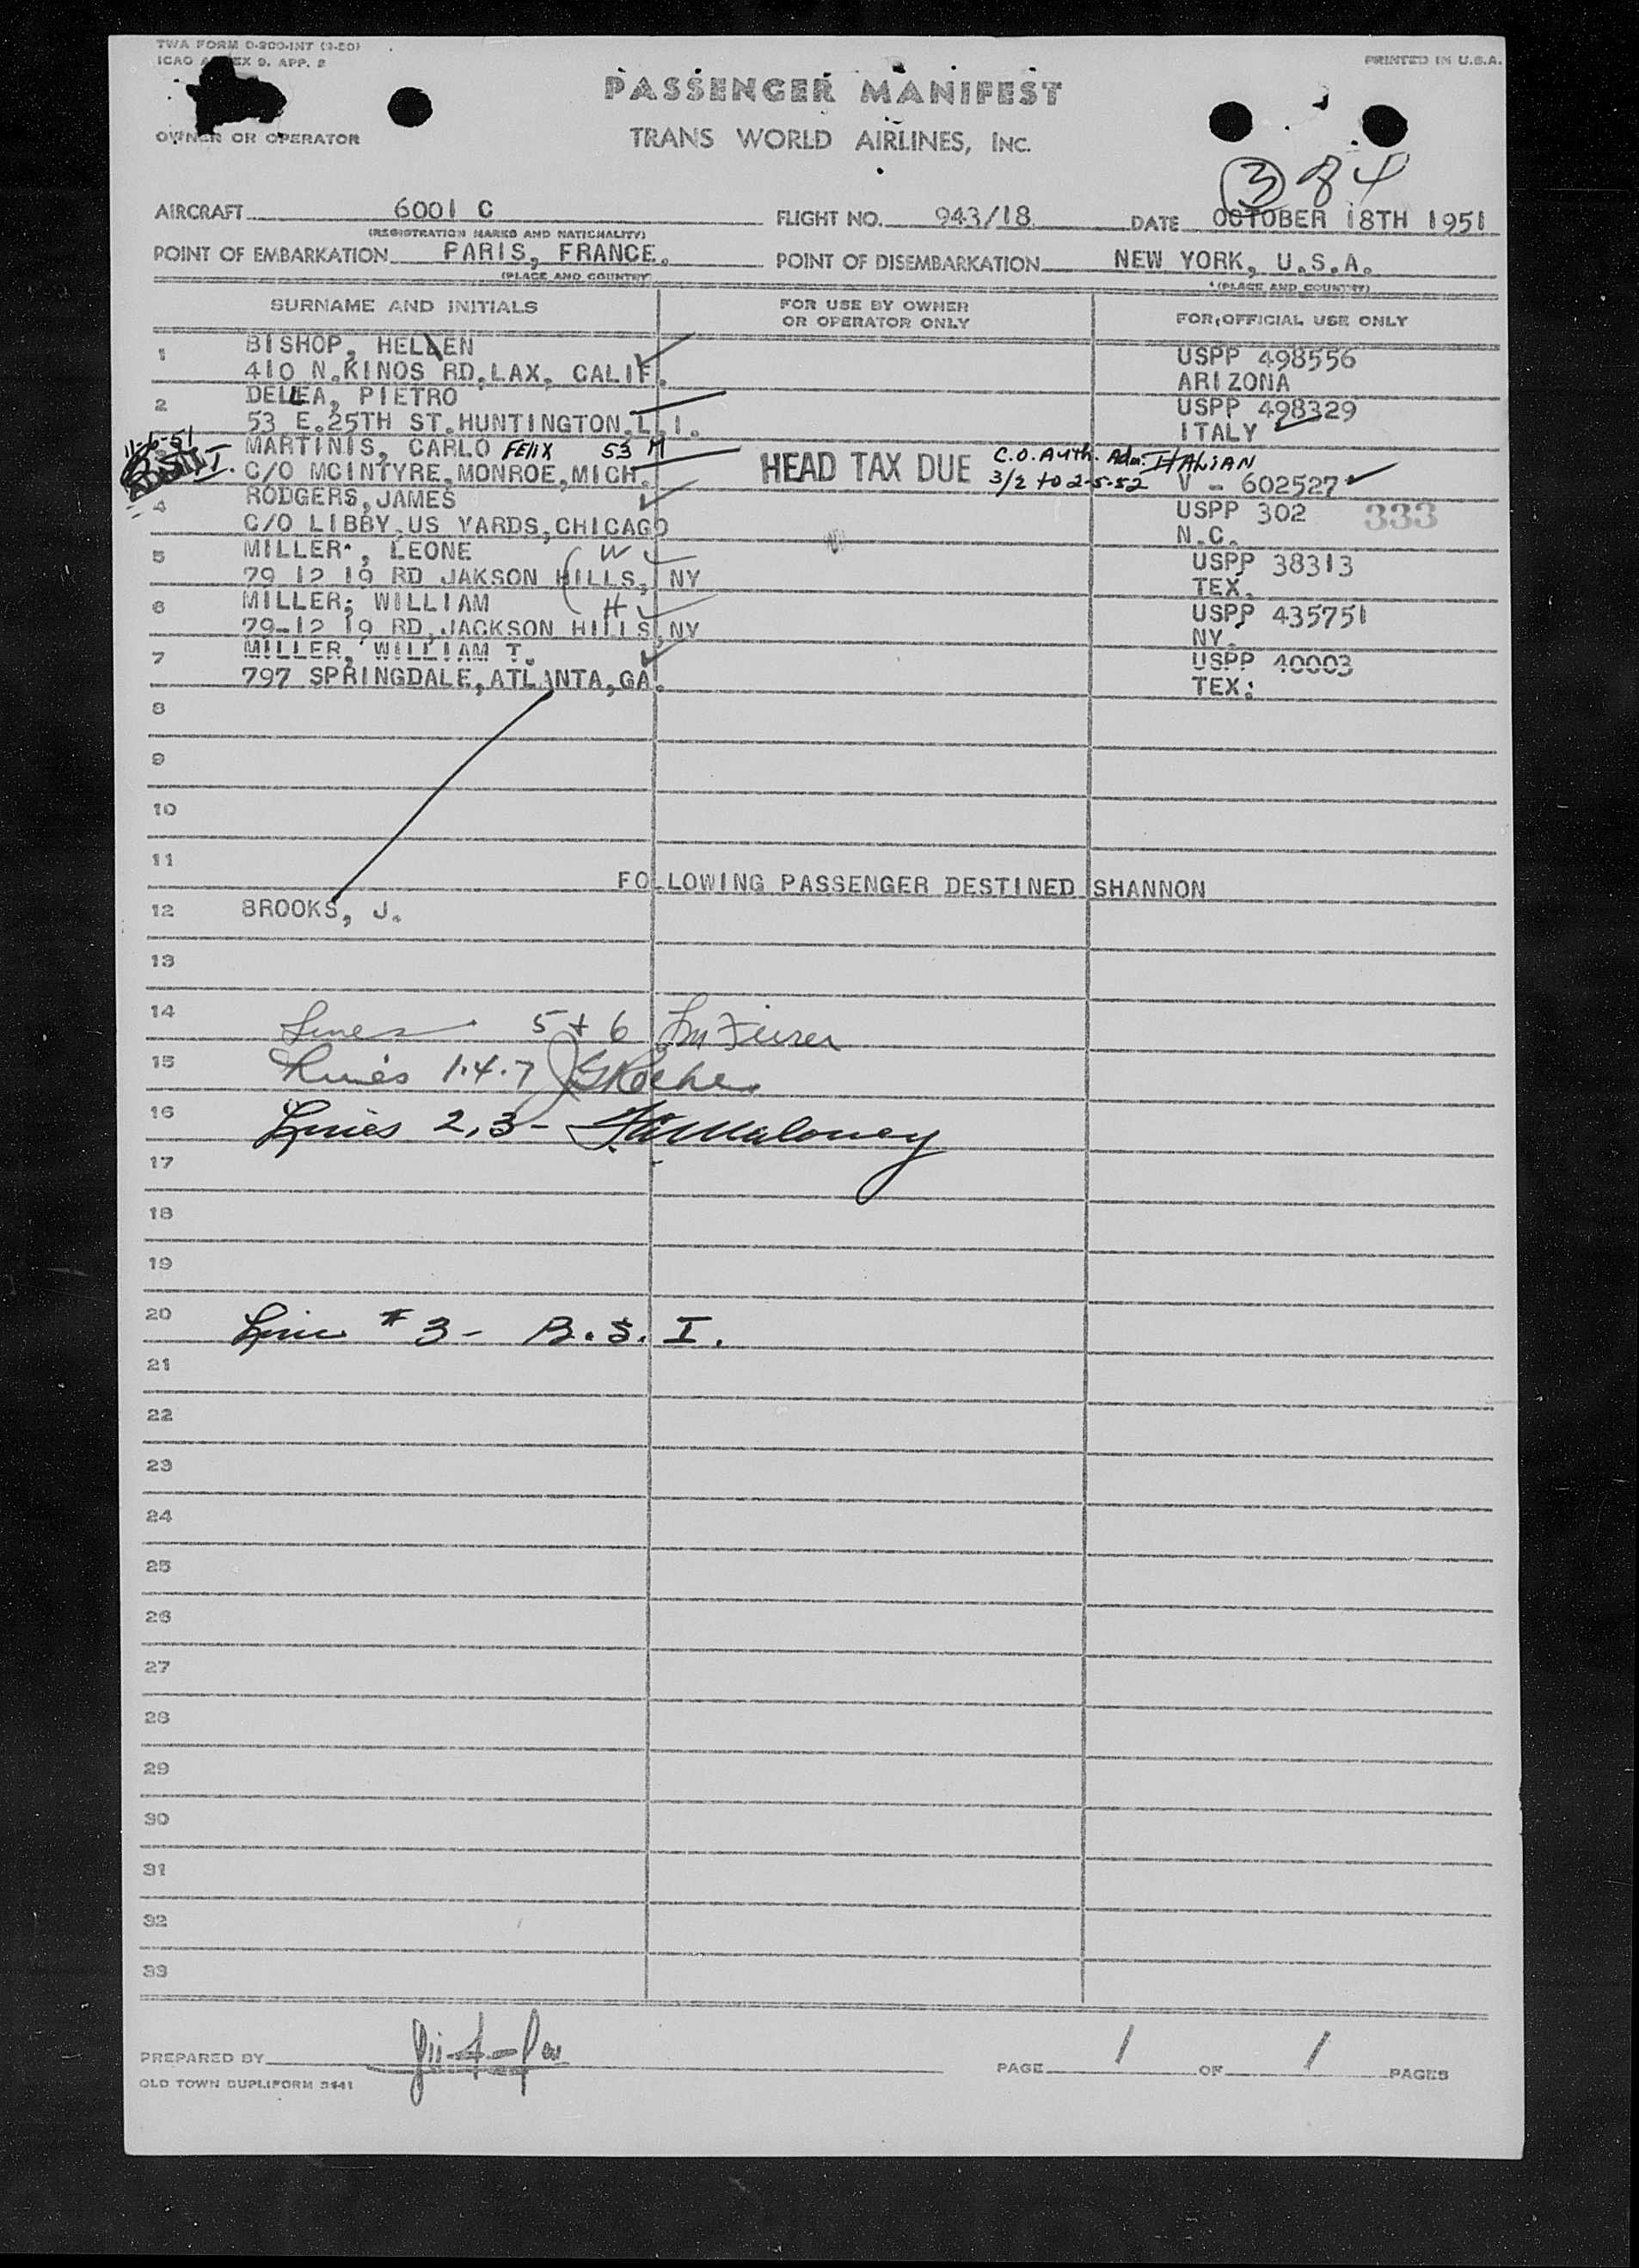 TWA FORM O-200-INT (9-50)
ICAO ANNEX 9. APP. 2
PRINTED IN U.S.A.
PASSENGER MANIFEST
OWNER OR OPERATOR
TRANS WORLD AIRLINES, INC.
3 84
AIRCRAFT 6001 C FLIGHT NO. 943/18 DATE OCTOBER 18TH 1951
(REGISTRATION MARKS AND NATIONALITY)
POINT OF EMBARKATION PARIS, FRANCE. POINT OF DISEMBARKATION NEW YORK, U.S.A.
(PLACE AND COUNTRY) (PLACE AND COUNTRY)
SURNAME AND INITIALS FOR USE BY OWNER OR OPERATOR ONLY FOR OFFICIAL USE ONLY
1 BISHOP, HELLEN USPP 498556
410 N.KINOS RD,LAX, CALIF. ARIZONA
2 DELLEA, PIETRO USPP 498329
53 E.25TH ST.HUNTINGTON,L.I. ITALY
11-6-51 MARTINIS, CARLO FELIX 53 M HEAD TAX DUE C.O. Auth. Adm. ITALIAN
C/O MCINTYRE,MONROE,MICH. 3/2 to 2-5-52 V - 602527
4 RODGERS,JAMES USPP 302 333
C/O LIBBY,US YARDS,CHICAGO N.C.
5 MILLER , LEONE W USPP 38313
79 12 19 RD JAKSON HILLS, NY TEX.
6 MILLER; WILLIAM H USPP 435751
79-12 19 RD,JACKSON HILLS,NY NY.
7 MILLER, WILLIAM T. USPP 40003
797 SPRINGDALE,ATLANTA,GA. TEX:
8
9
10
11
FOLLOWING PASSENGER DESTINED SHANNON
12 BROOKS, J.
13
14
Lines 5 + 6
15
Lines 1.4.7
16
Lines 2,3- Maloney
17
18
19
20
Line # 3- B.S.I.
21
22
23
24
25
26
27
28
29
30
31
32
33
PREPARED BY PAGE 1 OF 1 PAGES
OLD TOWN DUPLIFORM 3441